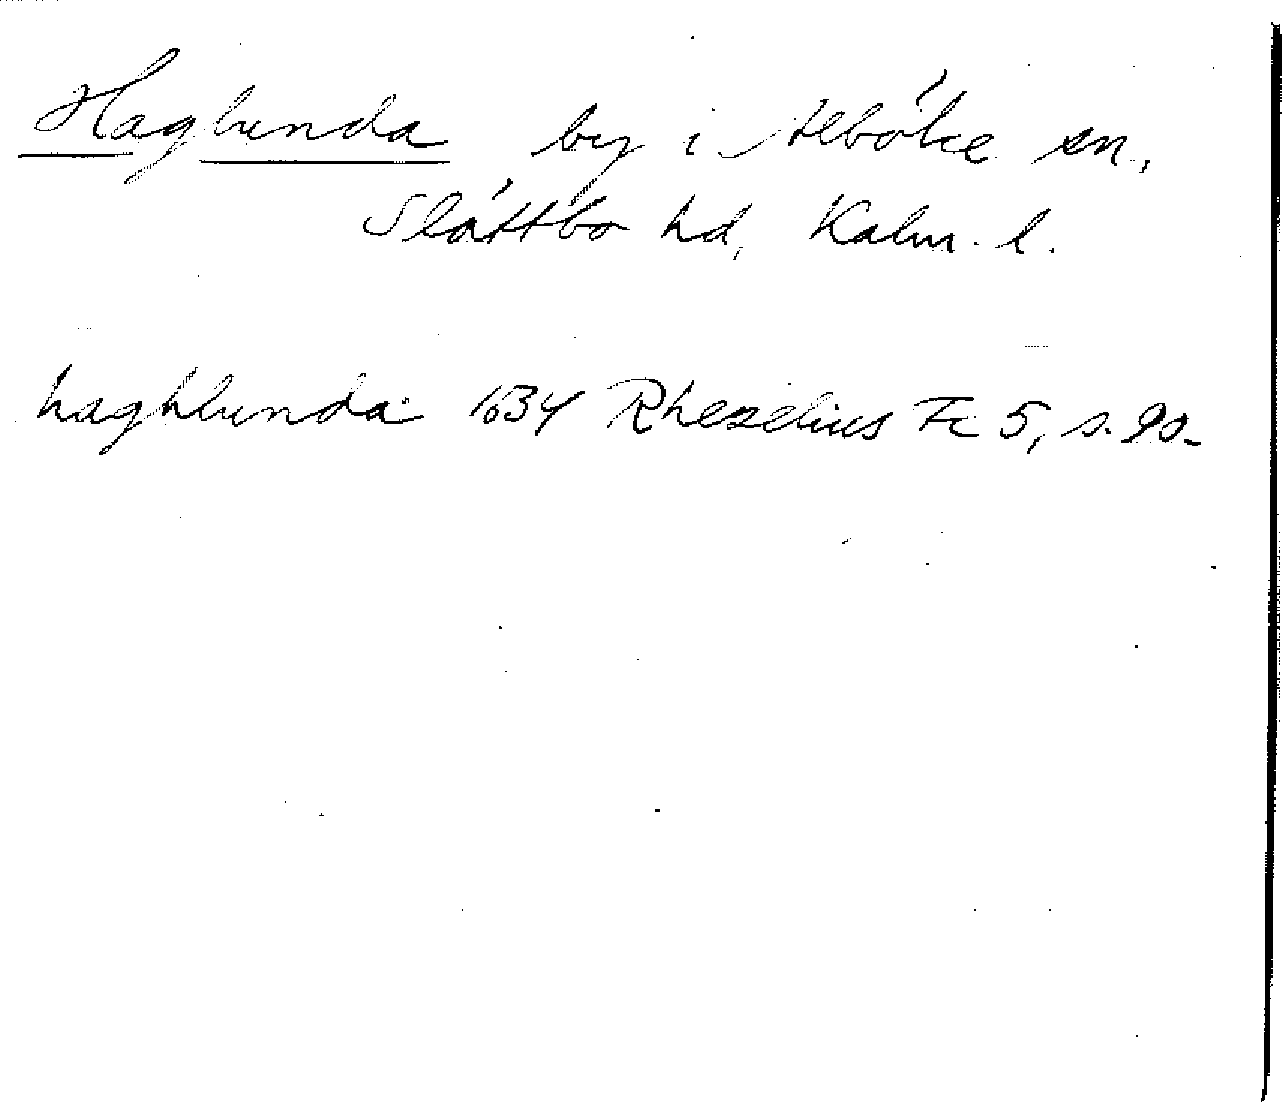 Haglunda by i Alböke sn,
Slättbo hd, Kalm. l.
haghlunda 1634 Rhezelius Fc 5, s. 90.